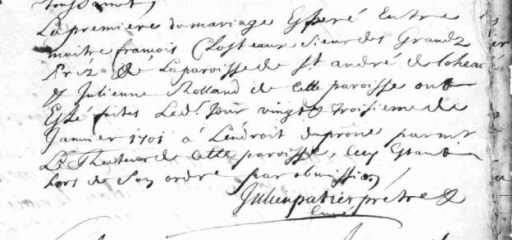 La premiere du mariage Esperé Entre
maitre francois Closteaux sieur des Grandz
Préz de La paroisse de St andré de
& Julienne Rolland de Cette paroisse ont
Esté faites Led. Jour vingt & troisieme de
Janvier 1701 á Lendroit du prone par mr
Le Recteur de Cette paroisse, Cecy Estant
hors de Son ordre par obmission
Julien patier prétre &
Curé